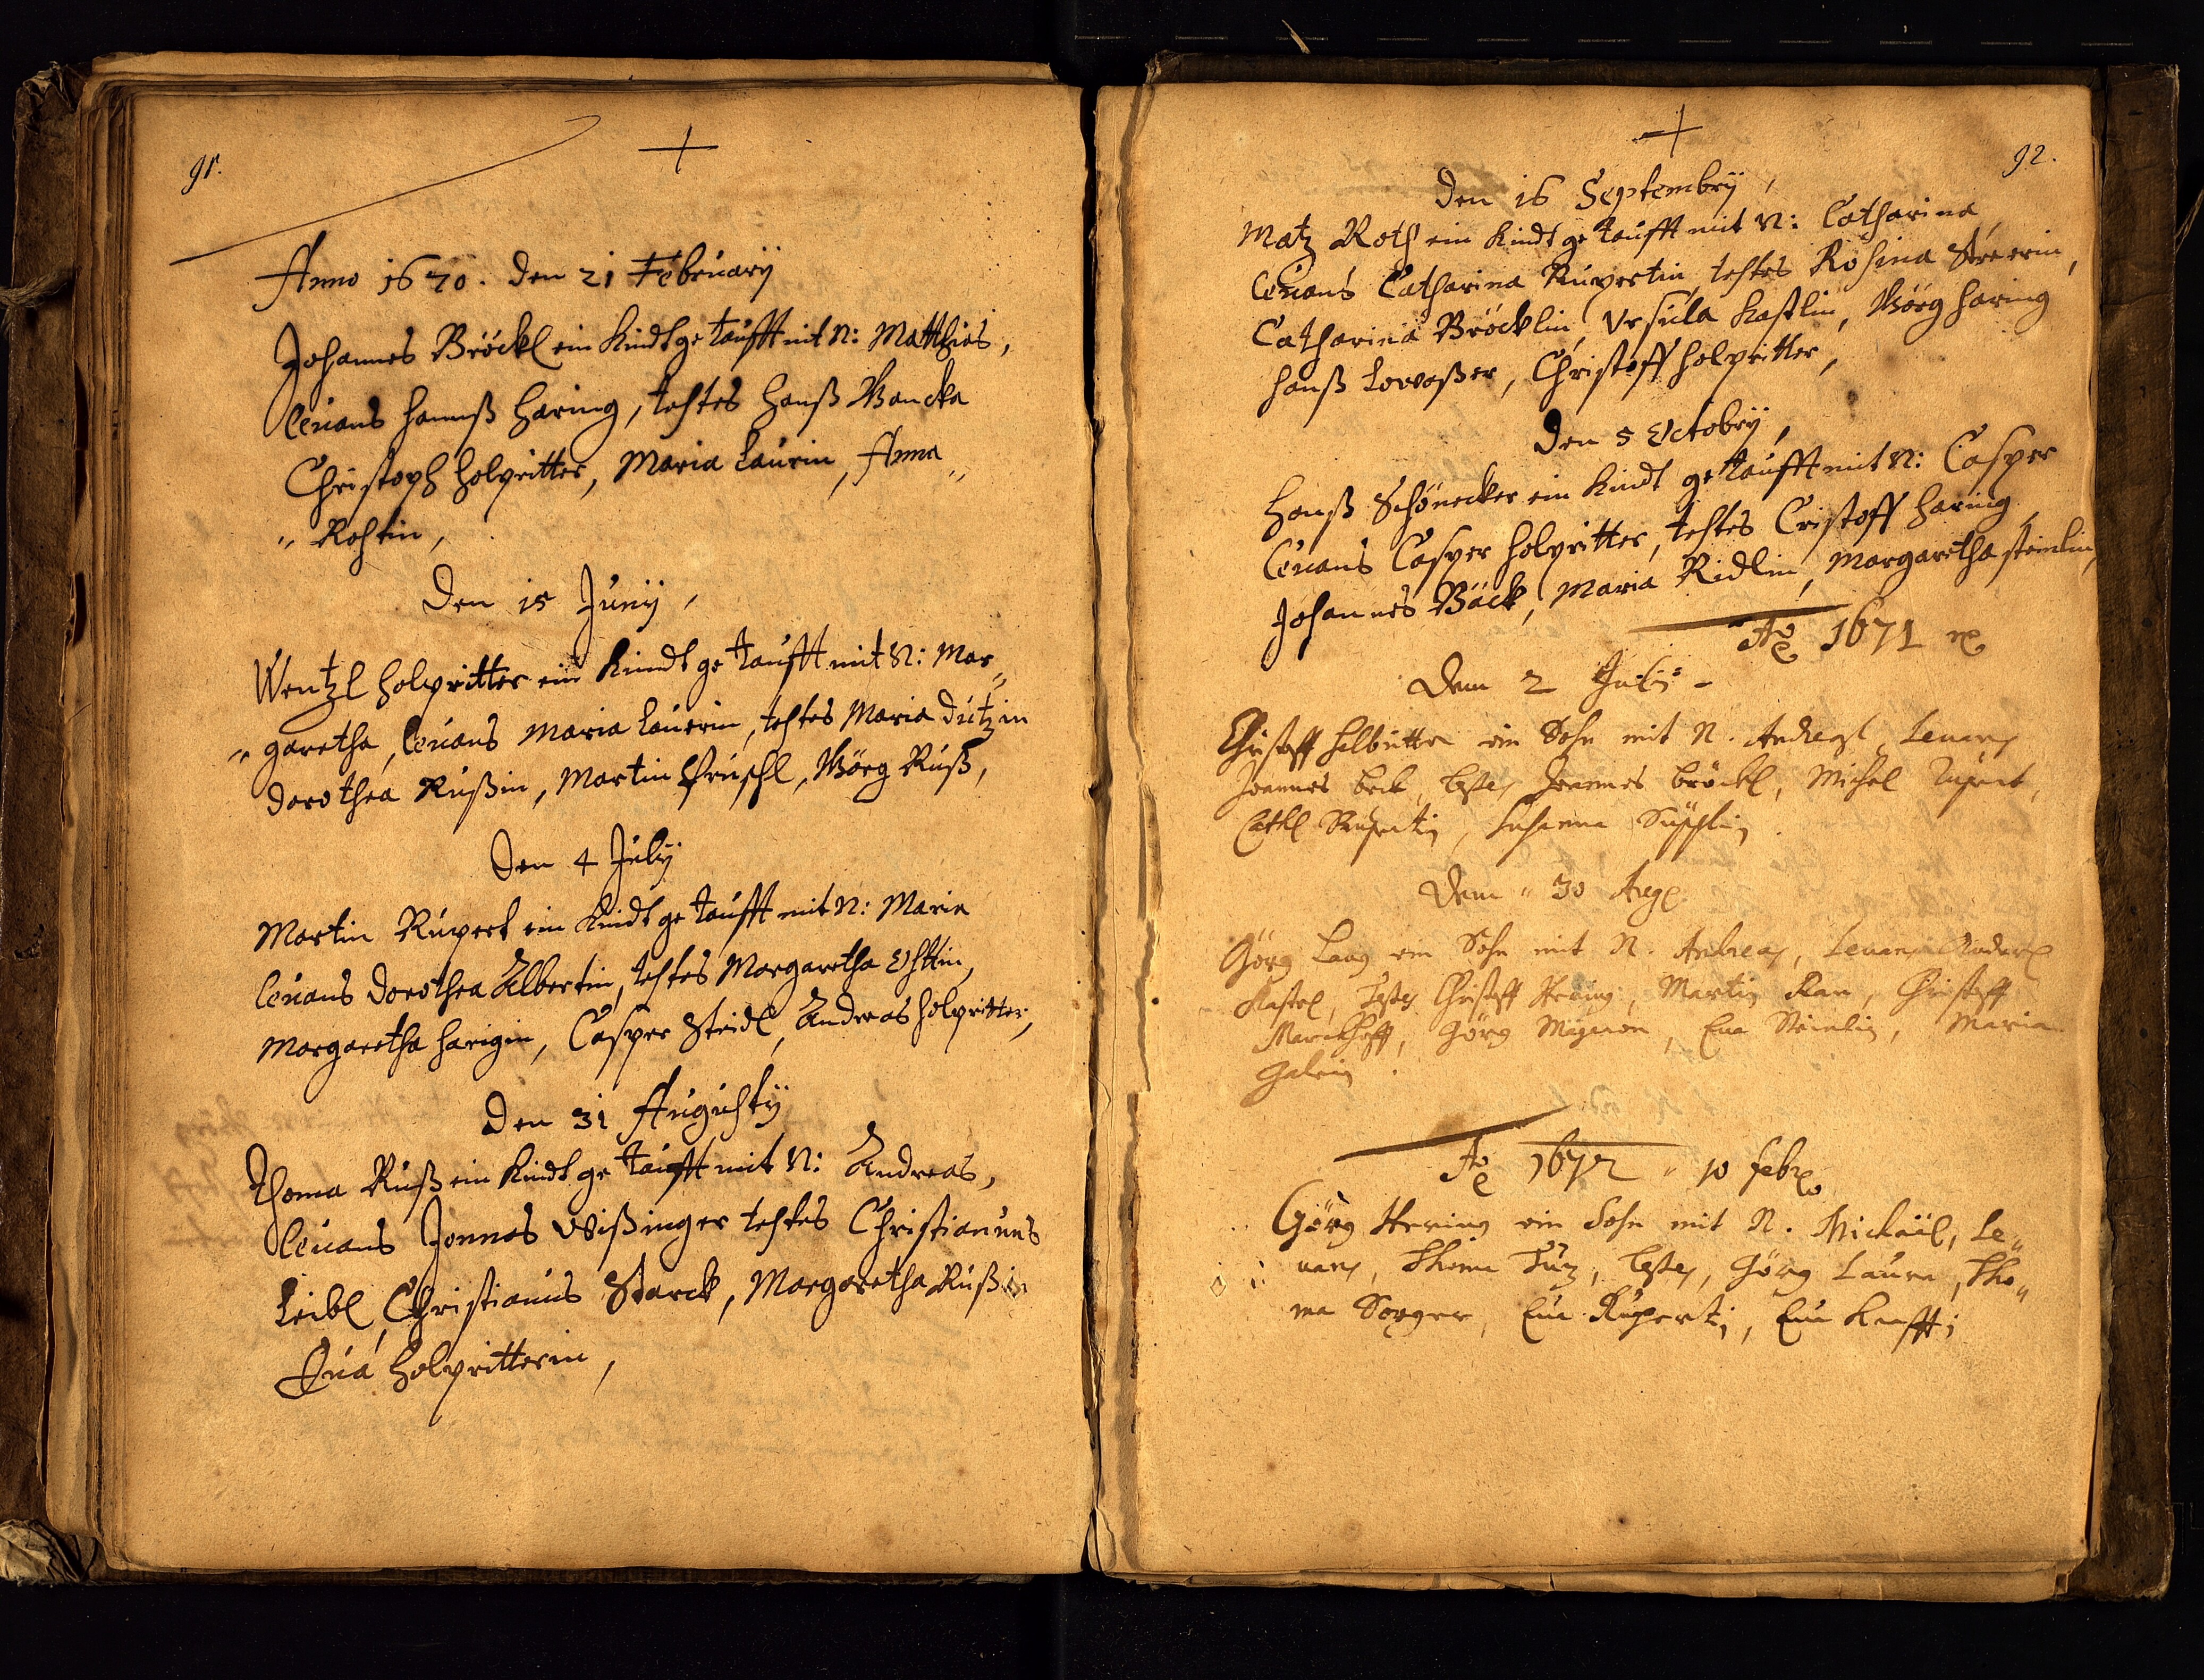 91.
Anno 1670. den 21 Februarÿ
Johannes Bröckl ein Kindt getaufft mit N: Matthias,
leuans Hannß Haring, testes Hanß Wancka
Christoph Holpritter, Maria Laurin, Anna
" Rostin,
Den 15 Junÿ,
Wentzl Holpritter ein Kindt getaufft mit N: Mar"
" garetha, leuans Maria Lauerin, testes Maria Dutzin
Dorothea Rußin, Martin Gruschl, Görg Ruß,
Den 4 Julÿ
Martin Rupert ein Kindt getaufft mit N: Maria
leuans Dorothea Albertin, testes Margaretha
Margaretha Harigin, Casper Steidl, Andreas Holpritter,
Den 31 Augustÿ
Thoma Ruß ein Kindt getaufft mit N: Andreas,
leuans Jonnas Wißinger testes Christianuus
Leibl, Christianus Starck, Margaretha Rußin
Eua Holpritterin,
92.
Den 16 Septembrÿ,
Matz Roth ein Kindt getaufft mit N: Catharina
leuans Catharina Rupertin, testes Rosina
Catharina Bröcklin, Ursula Kastlin, Görg Haring
Hanß Lowaßer, Christoff Holpritter,
Den 5 Octobrÿ,
Hanß Schönecker ein Kindt getaufft mit N: Casper
leuans Casper Holpritter, testes Cristoff Haring,
Johannes Bäck, Maria Ridlin, Margaretha Steinlin,
Ao 1671
Dem 2 Julÿ
Christoff Holbritter ein Sohn mit N. Andreas, Leuans
Joannes Beck, testes Joannes Bröckl, Michel Rupert,
Cathl Rupertin, Susanna
Dem " 30 Aug
Görg Lang ein Sohn mit N. Andreas, Leuans Anderl
Kastel, Testes Christoff Hering, Martin Ran, Christoff
Görg Wagner, Eua Steinlin, Maria
Ao 1672 " 10 febr
Görg Hering ein Sohn mit N. Michäil, Le"
uans, Thoma Tutz, testes, Görg Laurn, Tho"
ma Sorger, Eua Ruperti, Eua